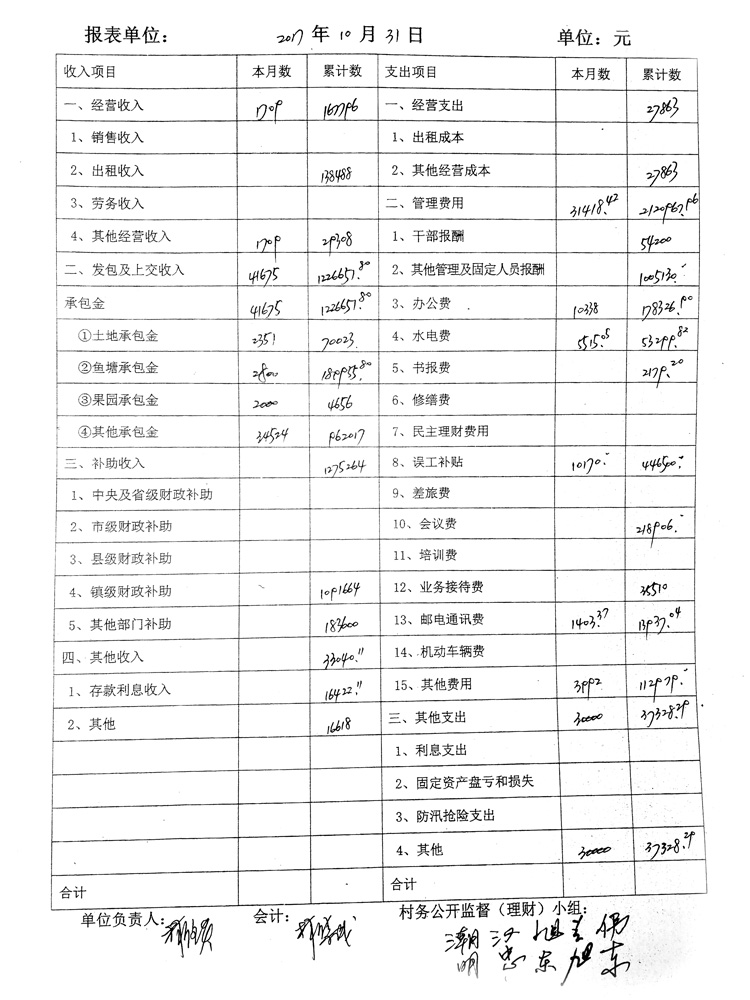 报表单位： 2017 年 10 月 31 日 单位：元
收入项目 本月数 累计数 支出项目 本月数 累计数
一、经营收入 1709 167796 一、经营支出 27863
1、销售收入 1、出租成本
2、出租收入 138488 2、其他经营成本 27863
3、劳务收入 二、管理费用 31418.42 2120967.96
4、其他经营收入 1709 29308 1、干部报酬 54200
二、发包及上交收入 41675 1226657.80 2、其他管理及固定人员报酬 1005130.-
承包金 41675 1226657.80 3、办公费 10338 178326.90
①土地承包金 2351 70023 4、水电费 5515.05 53299.82
②鱼塘承包金 2800 189955.80 5、书报费 2179.20
③果园承包金 2000 4656 6、修缮费
④其他承包金 34524 962017 7、民主理财费用
三、补助收入 1275264 8、误工补贴 10170.- 446500.-
1、中央及省级财政补助 9、差旅费
2、市级财政补助 10、会议费 218906.-
3、县级财政补助 11、培训费
4、镇级财政补助 1091664 12、业务接待费 35510
5、其他部门补助 183600 13、邮电通讯费 1403.37 13937.04
四、其他收入 33040.11 14、机动车辆费
1、存款利息收入 16422.11 15、其他费用 3992 112979.-
2、其他 16618 三、其他支出 30000 37328.29
1、利息支出
2、固定资产盘亏和损失
3、防汛抢险支出
4、其他 30000 37328.29
合计 合计
单位负责人： 会计： 村务公开监督（理财）小组：